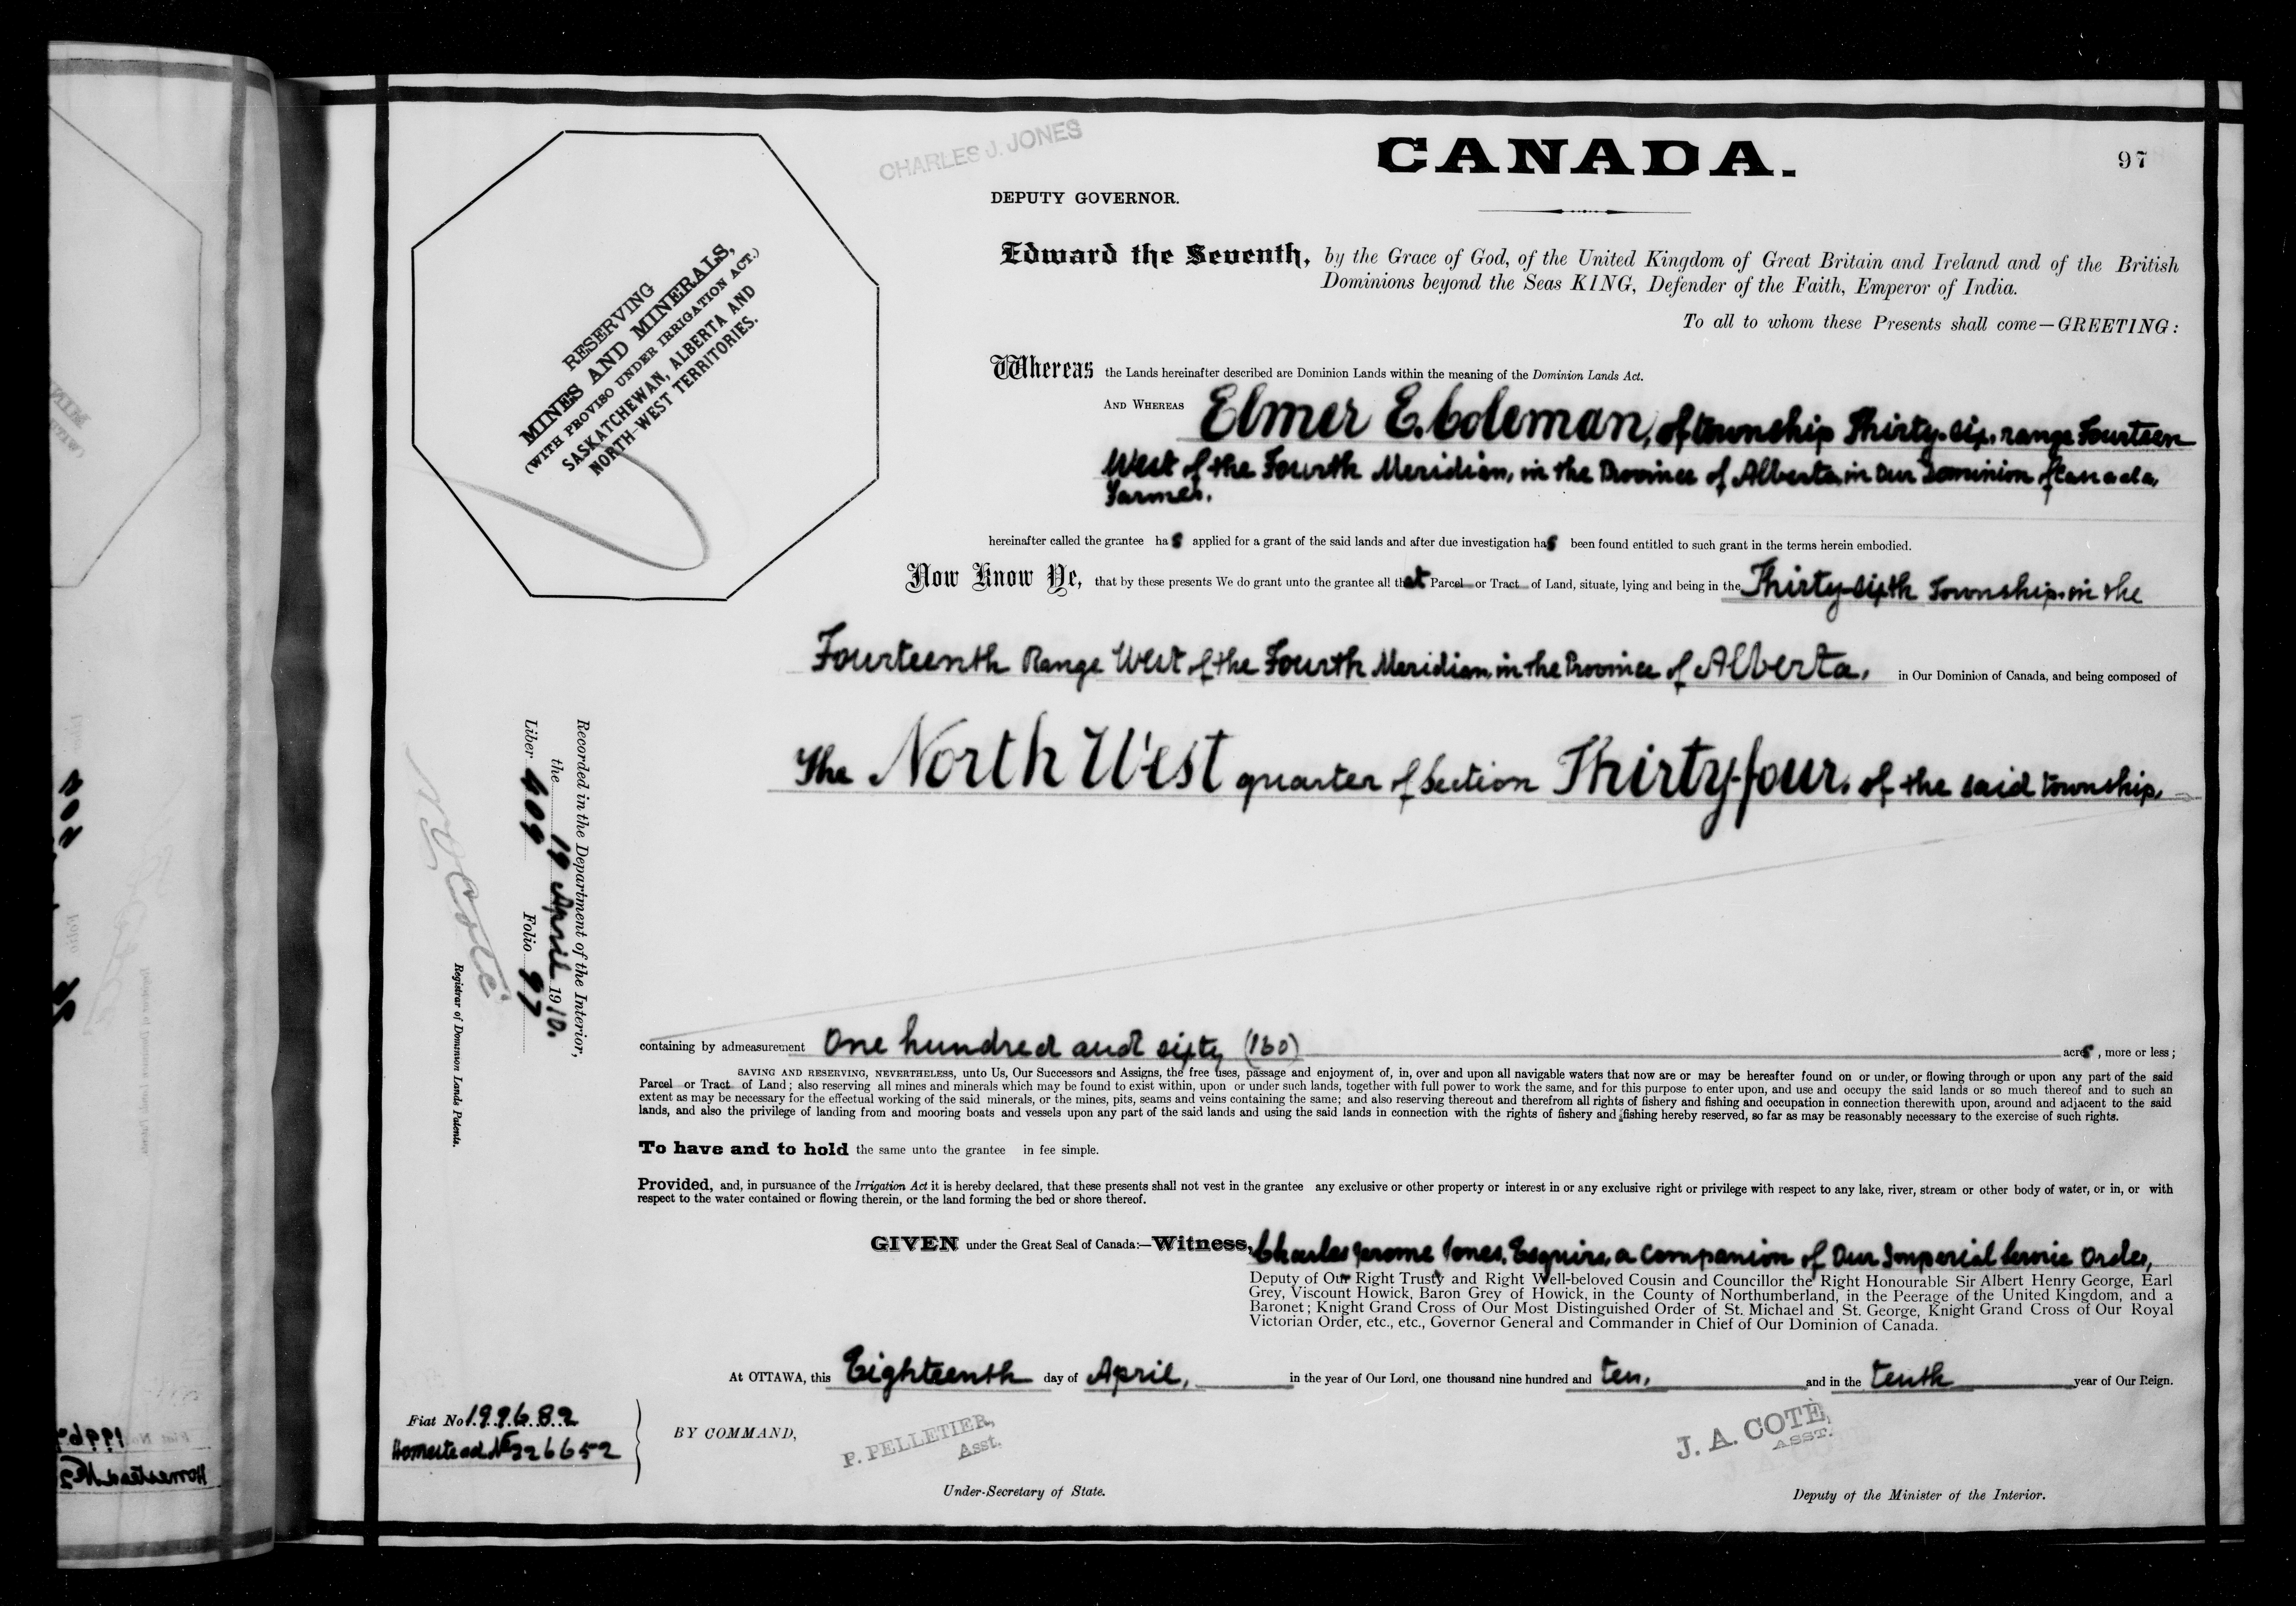 97
CHARLES J. JONES
CANADA.
DEPUTY GOVERNOR.
RESERVING
MINES AND MINERALS,
(WITH PROVISO UNDER IRRIGATION ACT.)
SASKATCHEWAN, ALBERTA AND
NORTH-WEST TERRITORIES.
Edward the Seventh, by the Grace of God, of the United Kingdom of Great Britain and Ireland and of the British
Dominions beyond the Seas KING, Defender of the Faith, Emperor of India.
To all to whom these Presents shall come—GREETING:
Whereas the Lands hereinafter described are Dominion Lands within the meaning of the Dominion Lands Act.
AND WHEREAS Elmer E. Coleman, of township Thirty-six, range Fourteen
West of the Fourth Meridian, in the Province of Alberta, in Our Dominion of Canada,
Farmer.
hereinafter called the grantee has applied for a grant of the said lands and after due investigation has been found entitled to such grant in the terms herein embodied.
Now Know Ye, that by these presents We do grant unto the grantee all that Parcel or Tract of Land, situate, lying and being in the Thirty-sixth Township, in the
Fourteenth Range West of the Fourth Meridian, in the Province of Alberta, in Our Dominion of Canada, and being composed of
The North West quarter of Section Thirty-four, of the said township,
Recorded in the Department of the Interior,
the 19 April 1910.
Liber 409 Folio 97
N O Coté
Registrar of Dominion Lands Patents.
containing by admeasurement One hundred and sixty (160) acres, more or less;
SAVING AND RESERVING, NEVERTHELESS, unto Us, Our Successors and Assigns, the free uses, passage and enjoyment of, in, over and upon all navigable waters that now are or may be hereafter found on or under, or flowing through or upon any part of the said
Parcel or Tract of Land; also reserving all mines and minerals which may be found to exist within, upon or under such lands, together with full power to work the same, and for this purpose to enter upon, and use and occupy the said lands or so much thereof and to such an
extent as may be necessary for the effectual working of the said minerals, or the mines, pits, seams and veins containing the same; and also reserving thereout and therefrom all rights of fishery and fishing and occupation in connection therewith upon, around and adjacent to the said
lands, and also the privilege of landing from and mooring boats and vessels upon any part of the said lands and using the said lands in connection with the rights of fishery and fishing hereby reserved, so far as may be reasonably necessary to the exercise of such rights.
To have and to hold the same unto the grantee in fee simple.
Provided, and, in pursuance of the Irrigation Act it is hereby declared, that these presents shall not vest in the grantee any exclusive or other property or interest in or any exclusive right or privilege with respect to any lake, river, stream or other body of water, or in, or with
respect to the water contained or flowing therein, or the land forming the bed or shore thereof.
GIVEN under the Great Seal of Canada:—Witness, Charles Jerome Jones, Esquire, a companion of Our Imperial Service Order,
Deputy of Our Right Trusty and Right Well-beloved Cousin and Councillor the Right Honourable Sir Albert Henry George, Earl
Grey, Viscount Howick, Baron Grey of Howick, in the County of Northumberland, in the Peerage of the United Kingdom, and a
Baronet; Knight Grand Cross of Our Most Distinguished Order of St. Michael and St. George, Knight Grand Cross of Our Royal
Victorian Order, etc., etc., Governor General and Commander in Chief of Our Dominion of Canada.
At OTTAWA, this Eighteenth day of April, in the year of Our Lord, one thousand nine hundred and ten, and in the tenth year of Our Reign.
Fiat No 199682
Homestead No 326652
BY COMMAND,
P. PELLETIER,
Asst.
Under-Secretary of State.
J. A. COTÉ,
ASST.
Deputy of the Minister of the Interior.